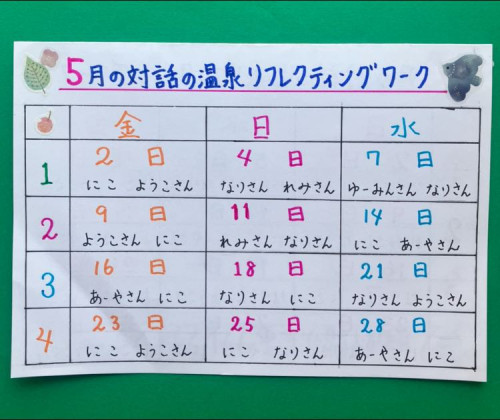 5月の対話の温泉リフレクティングワーク
金 日 水
1 2日 4日 7日
にこ ようこさん なりさん れみさん ゆーみんさん なりさん
2 9日 11日 14日
ようこさん にこ れみさん なりさん にこ あーやさん
3 16日 18日 21日
あーやさん にこ なりさん にこ なりさん ようこさん
4 23日 25日 28日
にこ ようこさん にこ なりさん あーやさん にこ